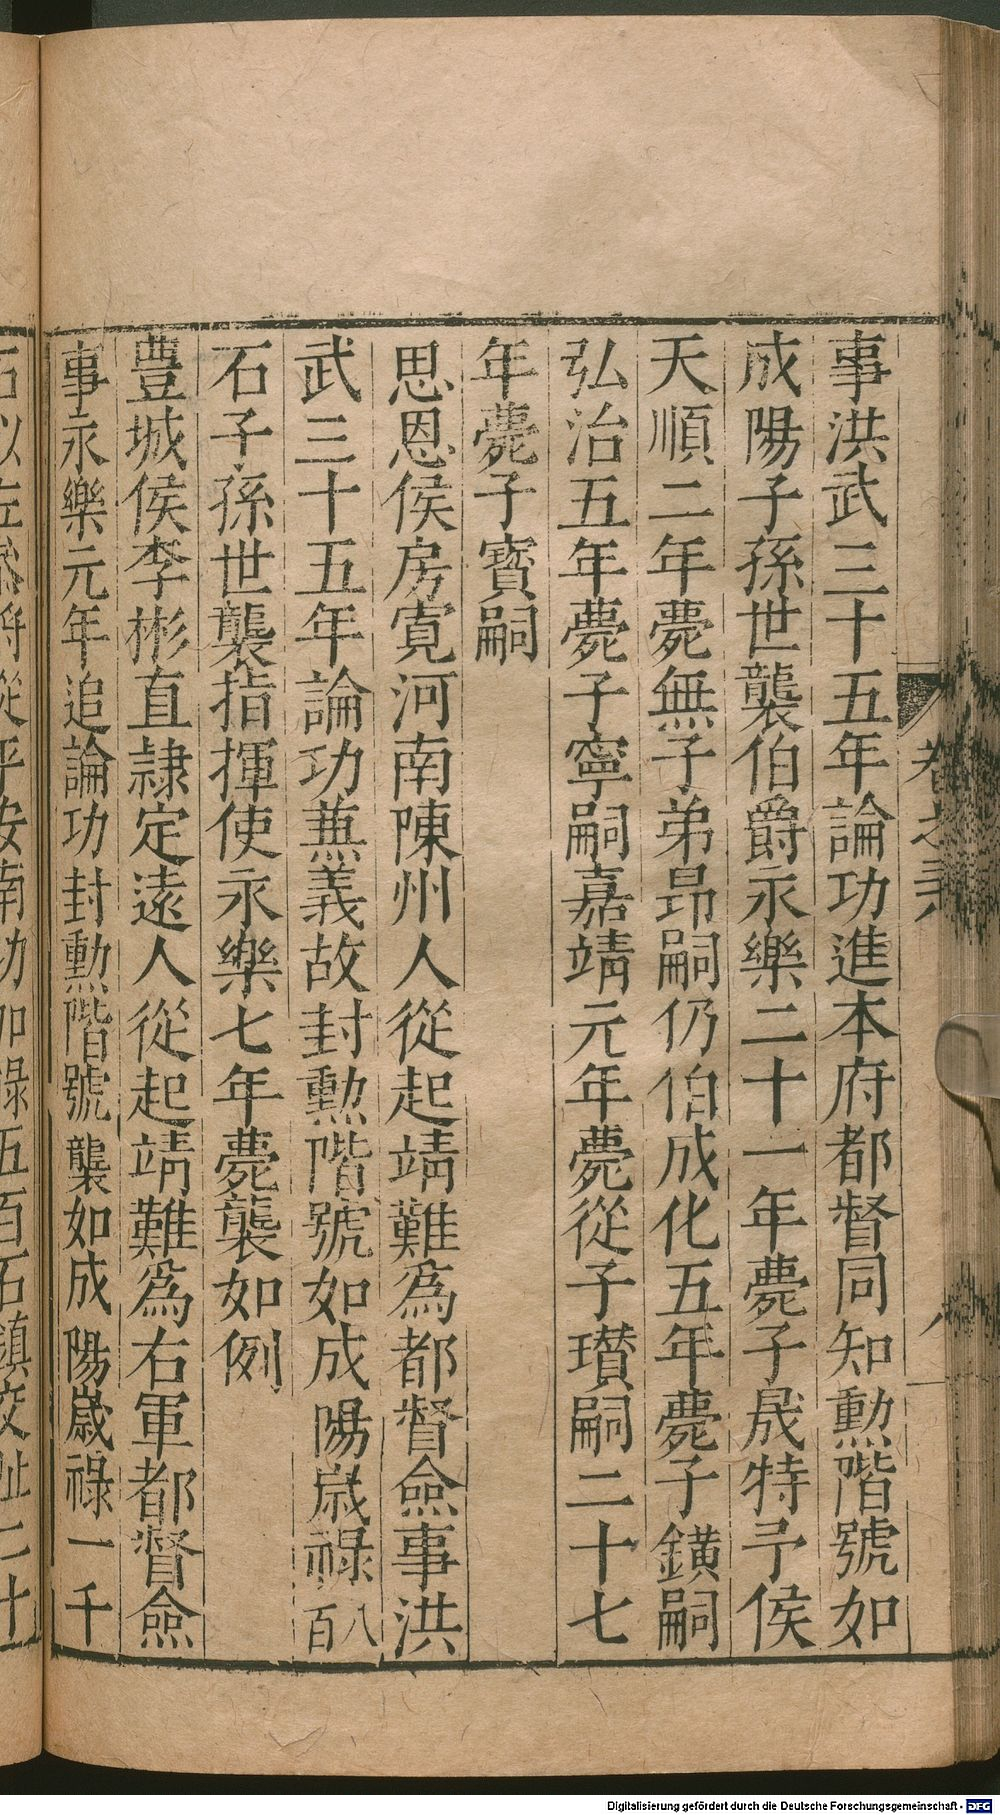 事洪武三十五年論功進本府都督同知勲階號如
成陽子孫世襲伯爵永樂二十一年薨子晟特予侯
天順二年薨無子弟昂嗣仍伯成化五年薨子鐄嗣
弘治五年薨子寧嗣嘉靖元年薨從子瓚嗣二十七
年薨子寳嗣
思恩侯房寛河南陳州人從起靖難為都督僉事洪
武三十五年論功蕪義故封勲階號如成陽嵗祿八百
石子孫世襲指揮使永樂七年薨襲如例
豊城侯李彬直隷定遠人從起靖難為右軍都督僉
事永樂元年追論功封勲階號襲如成陽嵗祿一千
石以左叅將從平安南功加祿五百石鎮交阯二十
Digitalisierung gefördert durch die Deutsche Forschungsgemeinschaft - DFG